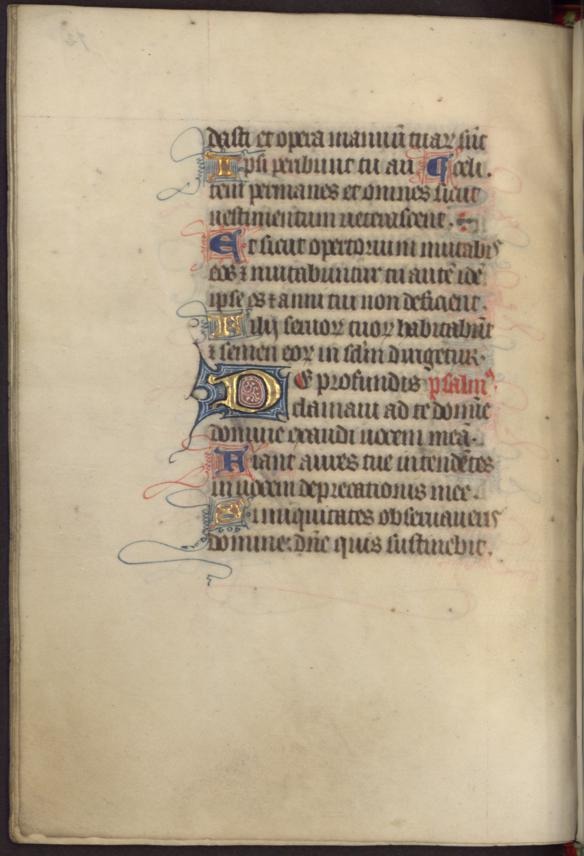 dasti et opera manuū tuaꝝ sūt
celi.
Ipsi peribunt tu aū
tem permanes et omnes sicut
uestimentum ueterascent.
Et sicut opertorium mutabis
eos ⁊ mutabuntur tu autē idē
ipse es ⁊ anni tui non deficient.
Filij seruoꝝ tuoꝝ habitabūt
⁊ semen eoꝝ in sclm dirigetur.
De profundis psalm
clamaui ad te domine
domine exaudi uocem meā.
Fiant aures tue intendētes
in uocem deprecationis mee.
Si iniquitates obseruaueris
domine: dn̄e quis sustinebit.